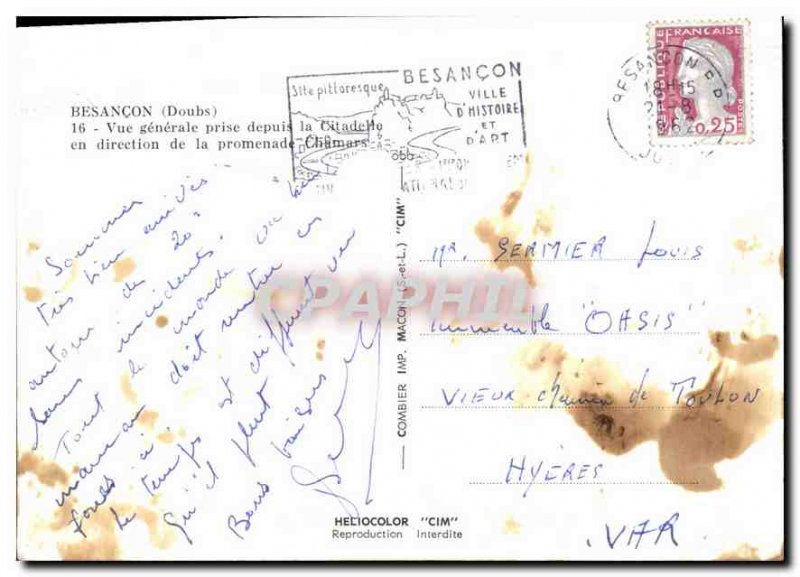 BESANÇON (Doubs)
16 - Vue générale prise depuis la Citadelle
en direction de la promenade Chamars
Site pittoresque
BESANÇON
VILLE
D'HISTOIRE
ET
D'ART
BESANÇON R.P.
18H15
REPUBLIQUE FRANÇAISE
POSTES
0,25
Sommes
très bien arrivés
autour de 20h
sans incidents.
Tout le monde va bien
maman doit rentrer en
Le temps est différent
qu'il pleut
Bons baisers
COMBIER IMP. MACON (S.-et-L.) "CIM"
Mr. GERMIER Louis
Immeuble "OASIS"
VIEUX chemin de TOULON
HYÈRES
VAR
HELIOCOLOR "CIM"
Reproduction Interdite
CPAPHIL